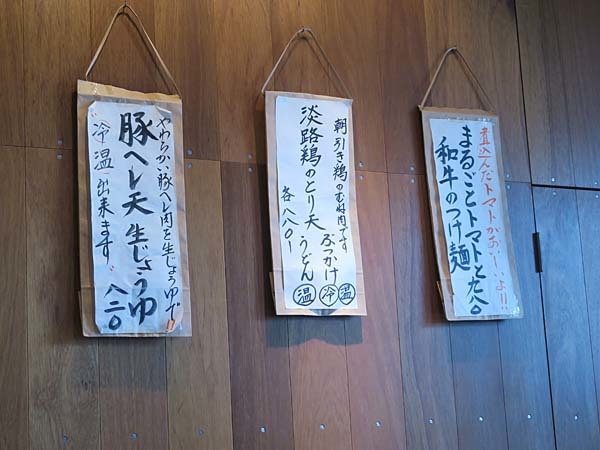 やわらかい豚ヘレ肉を生じょうゆで!!
豚ヘレ天 生じょうゆ 八二〇
"冷温"出来ます"
朝引き鶏のむね肉です
淡路鶏のとり天
ぶっかけ 冷 温
うどん 温
各八八〇ー
煮込んだトマトがおいしーいよ!!
まるごとトマトと
和牛のつけ麺
九八〇